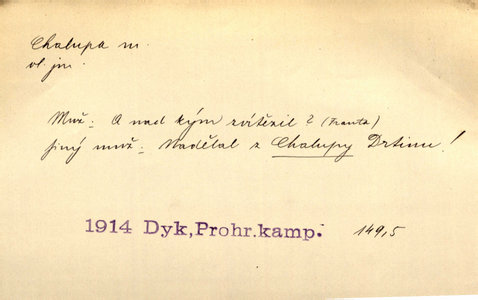 Chalupa m.
vl. jm.
Muž: A nad kým zvítězil? (Franta)
jiný muž: Nadělal z Chalupy Drtinu!
1914 Dyk, Prohr. kamp. 149,5